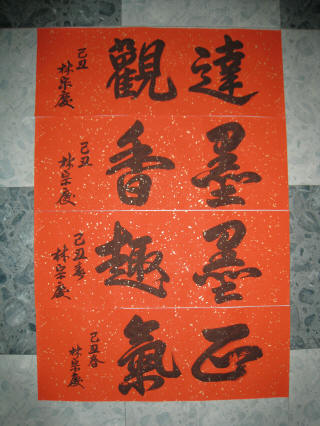 達觀
己丑
林宗慶
墨香
己丑
林宗慶
墨趣
己丑春
林宗慶
正氣
己丑春
林宗慶